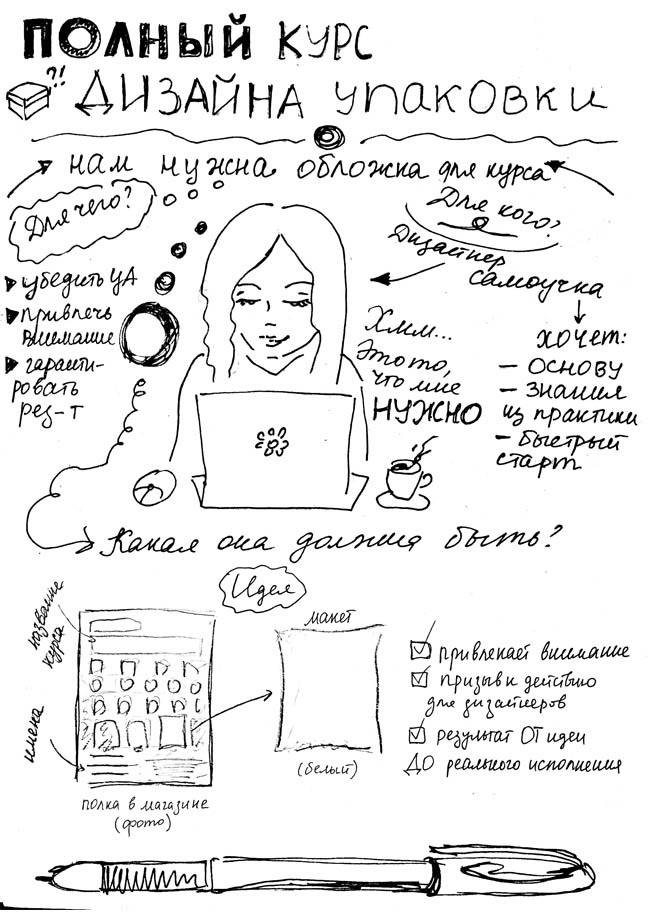 ПОЛНЫЙ КУРС
?!
ДИЗАЙНА УПАКОВКИ
нам нужна обложка для курса
Для чего?
убедить ЦА
привлечь
внимание
гаранти-
ровать
рез-т
Для кого?
Дизайнер
самоучка
Хмм...
Это то,
что мне
НУЖНО
хочет:
- основу
- знания
из практики
- быстрый
старт
Какая она должна быть?
Идея
название
курса
имена
полка в магазине
(фото)
макет
(белый)
привлекает внимание
призыв к действию
для дизайнеров
результат ОТ идеи
ДО реального исполнения